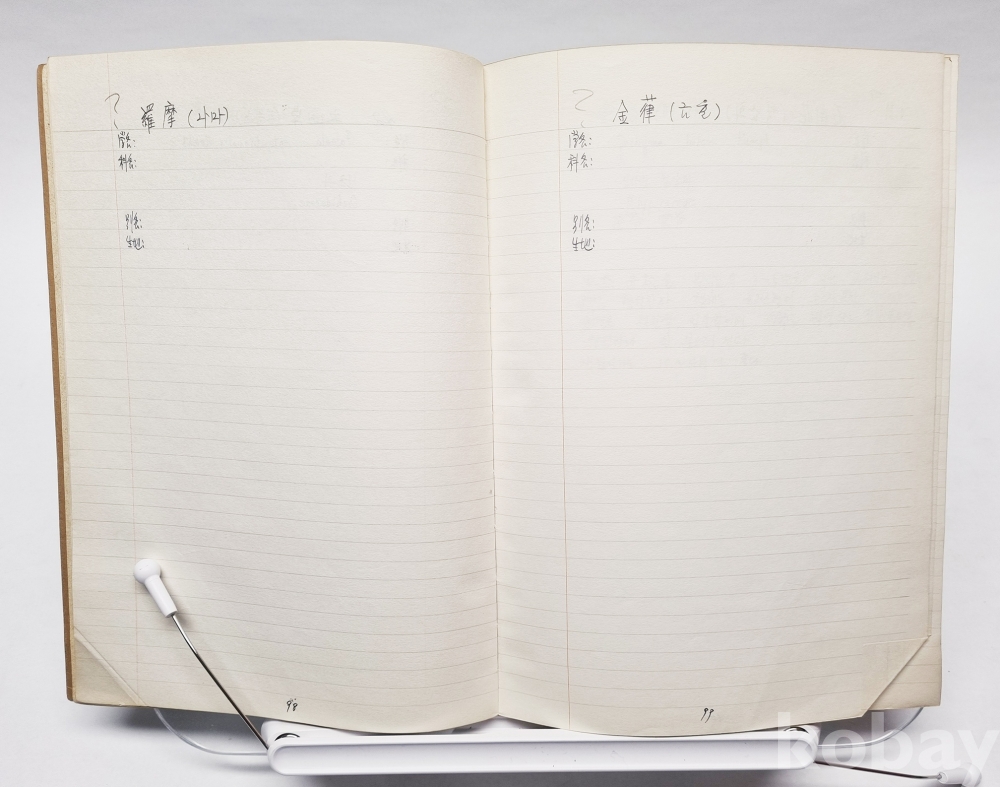 羅摩 (나마)
学名:
科名:
別名:
生地:
98
金葎 (금률)
学名:
科名:
別名:
生地:
99
kobay